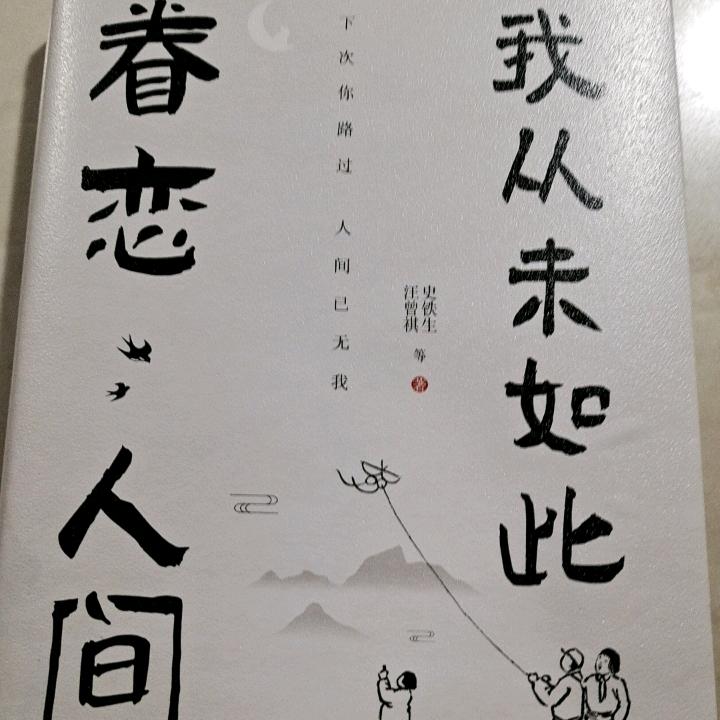 我从未如此
眷恋人间
下次你路过 人间已无我
史铁生
汪曾祺
等
著